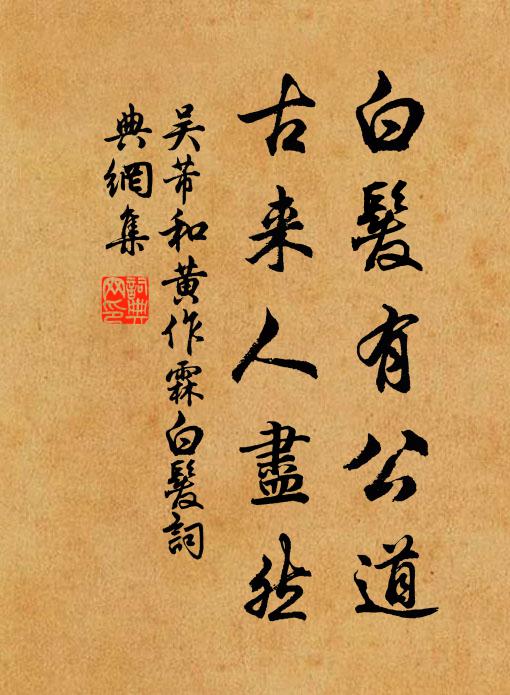 白髮有公道
古来人盡然
吴芾和黄作霖白髮詞
典網集
詞典
网印